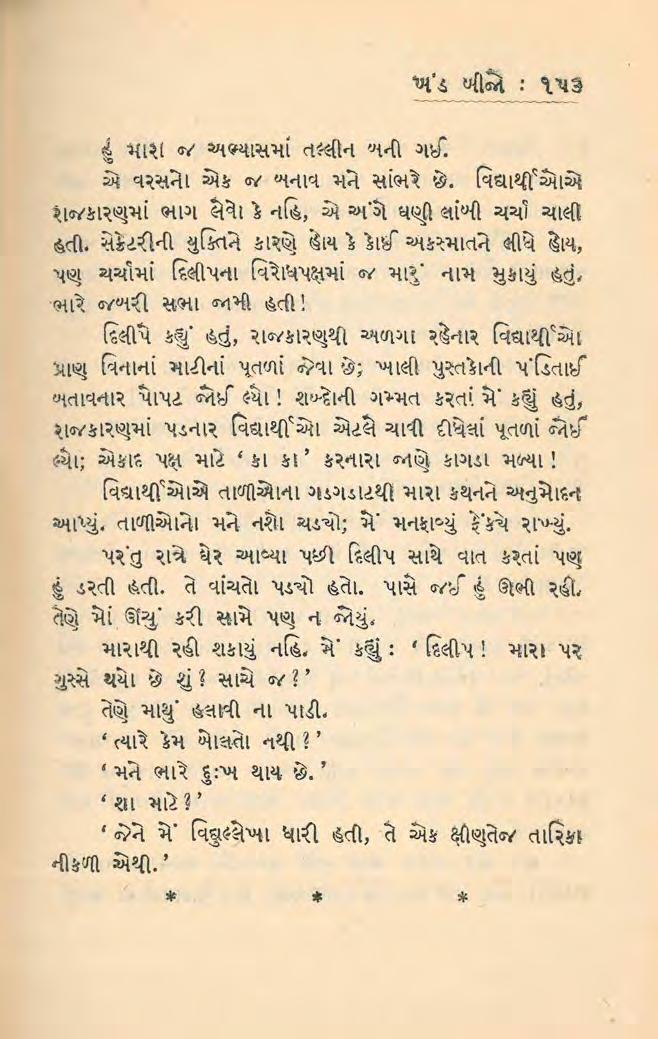 ખંડ બીજો : ૧૫૩
હું મારા જ અભ્યાસમાં તલ્લીન બની ગઈ.
એ વરસનો એક જ બનાવ મને સાંભરે છે. વિદ્યાર્થીઓએ
રાજકારણમાં ભાગ લેવો કે નહિ, એ અંગે ઘણી લાંબી ચર્ચા ચાલી
હતી. સેક્રેટરીની યુક્તિને કારણે હોય કે કોઈ અકસ્માતને લીધે હોય,
પણ ચર્ચામાં દિલીપના વિરોધપક્ષમાં જ મારું નામ મુકાયું હતું.
ભારે જબરી સભા જામી હતી!
દિલીપે કહ્યું હતું, રાજકારણથી અળગા રહેનાર વિદ્યાર્થીઓ
પ્રાણ વિનાનાં માટીનાં પૂતળાં જેવા છે; ખાલી પુસ્તકોની પંડિતાઈ
બતાવનાર પોપટ જોઈ લ્યો! શબ્દોની ગમ્મત કરતાં મેં કહ્યું હતું,
રાજકારણમાં પડનાર વિદ્યાર્થીઓ એટલે ચાવી દીધેલાં પૂતળાં જોઈ
લ્યો; એકાદ પક્ષ માટે ‘કા કા’ કરનારા જાણે કાગડા મળ્યા!
વિદ્યાર્થીઓએ તાળીઓના ગડગડાટથી મારા કથનને અનુમોદન
આપ્યું. તાળીઓનો મને નશો ચડચો; મેં મનફાવ્યું ફેંકચે રાખ્યું.
પરંતુ રાત્રે ઘેર આવ્યા પછી દિલીપ સાથે વાત કરતાં પણ
હું ડરતી હતી. તે વાંચતો પડચો હતો. પાસે જઈ હું ઊભી રહી.
તેણે મોં ઊંચું કરી સામે પણ ન જોયું.
મારાથી રહી શકાયું નહિ. મેં કહ્યું : ‘દિલીપ! મારા પર
ગુસ્સે થયો છે શું? સાચે જ?’
તેણે માથું હલાવી ના પાડી.
‘ત્યારે કેમ બોલતો નથી?’
‘મને ભારે દુ:ખ થાય છે.’
‘શા માટે?’
‘જેને મેં વિદ્યુલ્લેખા ધારી હતી, તે એક ક્ષીણતેજ તારિકા
નીકળી એથી.’
* * *